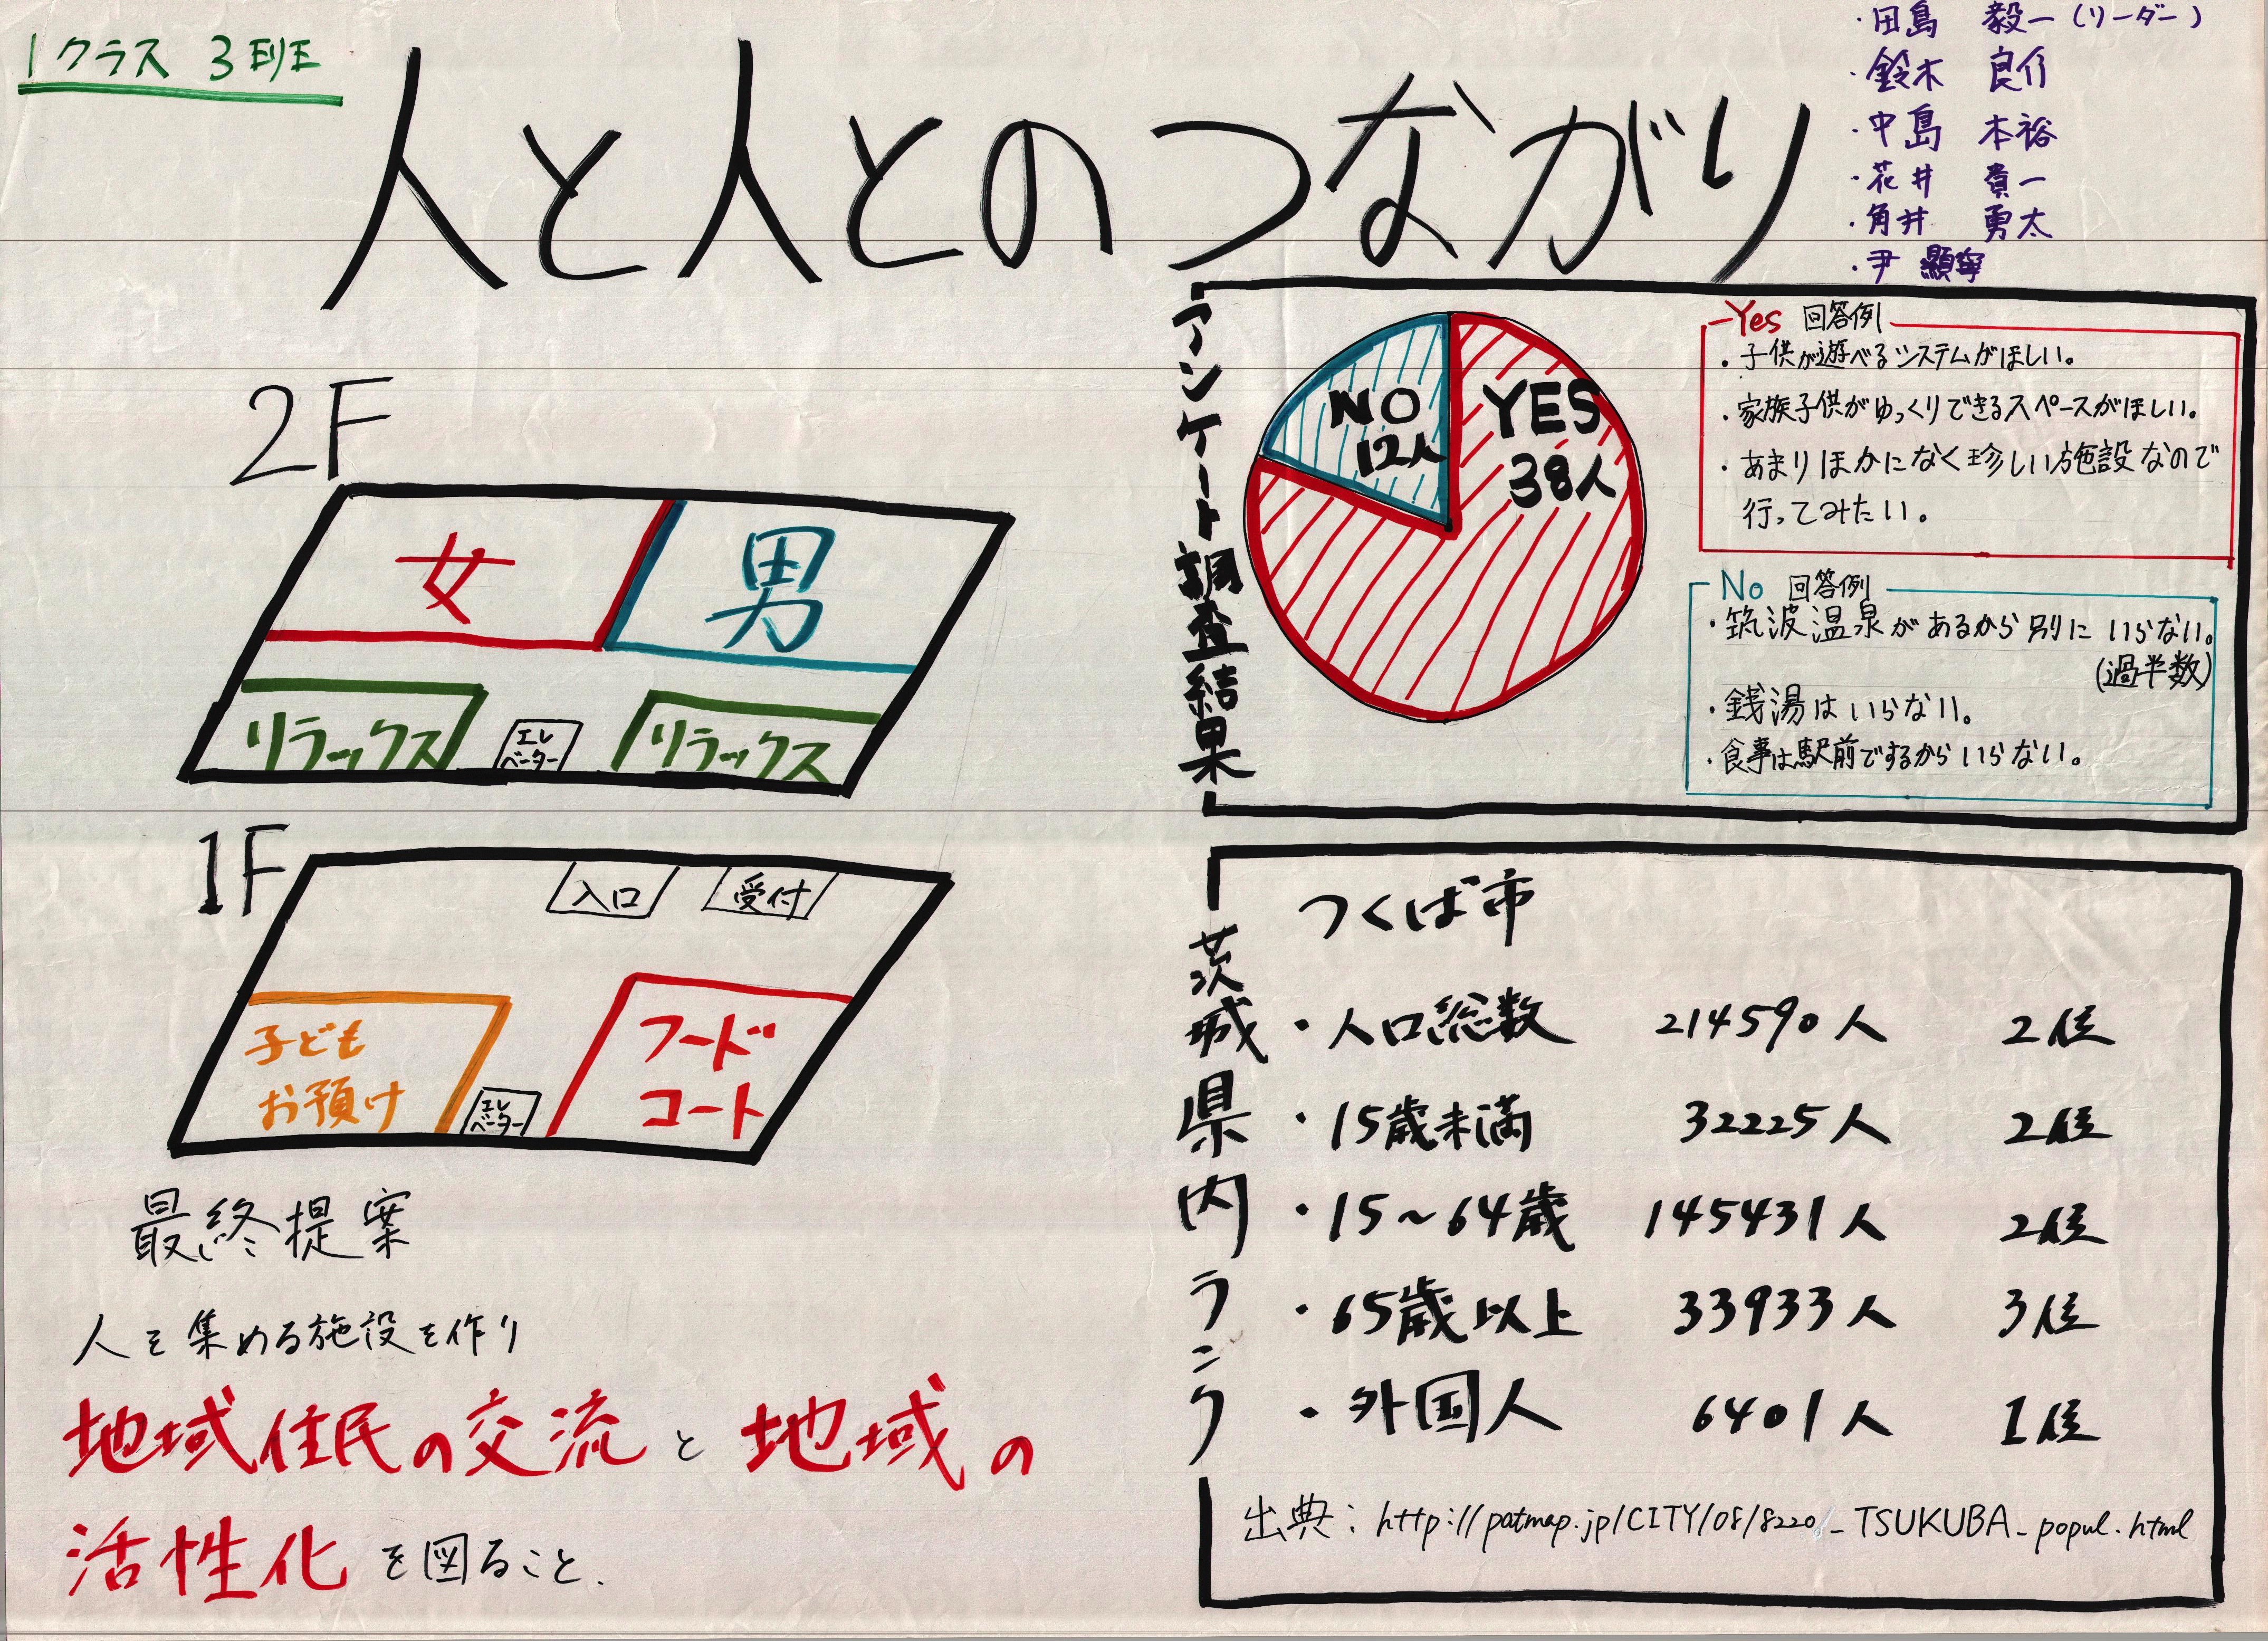 1クラス 3班
・田島 毅一(リーダー)
・鈴木 良介
・中島 本裕
・花井 貴一
・角井 勇太
・尹 顯寧
人と人とのつながり
2F
女
男
リラックス
エレ
ベーター
リラックス
1F
入口
受付
子ども
お預け
エレ
ベーター
フード
コート
最終提案
人を集める施設を作り
地域住民の交流と地域の
活性化を図ること.
アンケート調査結果
NO
12人
YES
38人
Yes 回答例
・子供が遊べるシステムがほしい。
・家族子供がゆっくりできるスペースがほしい。
・あまりほかになく珍しい施設なので
行ってみたい。
No 回答例
・筑波温泉があるから別にいらない。
(過半数)
・銭湯はいらない。
・食事は駅前でするからいらない。
茨城県内ランク
つくば市
・人口総数 214590人 2位
・15歳未満 32225人 2位
・15~64歳 145431人 2位
・65歳以上 33933人 3位
・外国人 6401人 1位
出典:http://patmap.jp/CITY/08/8220/_TSUKUBA_popul.html